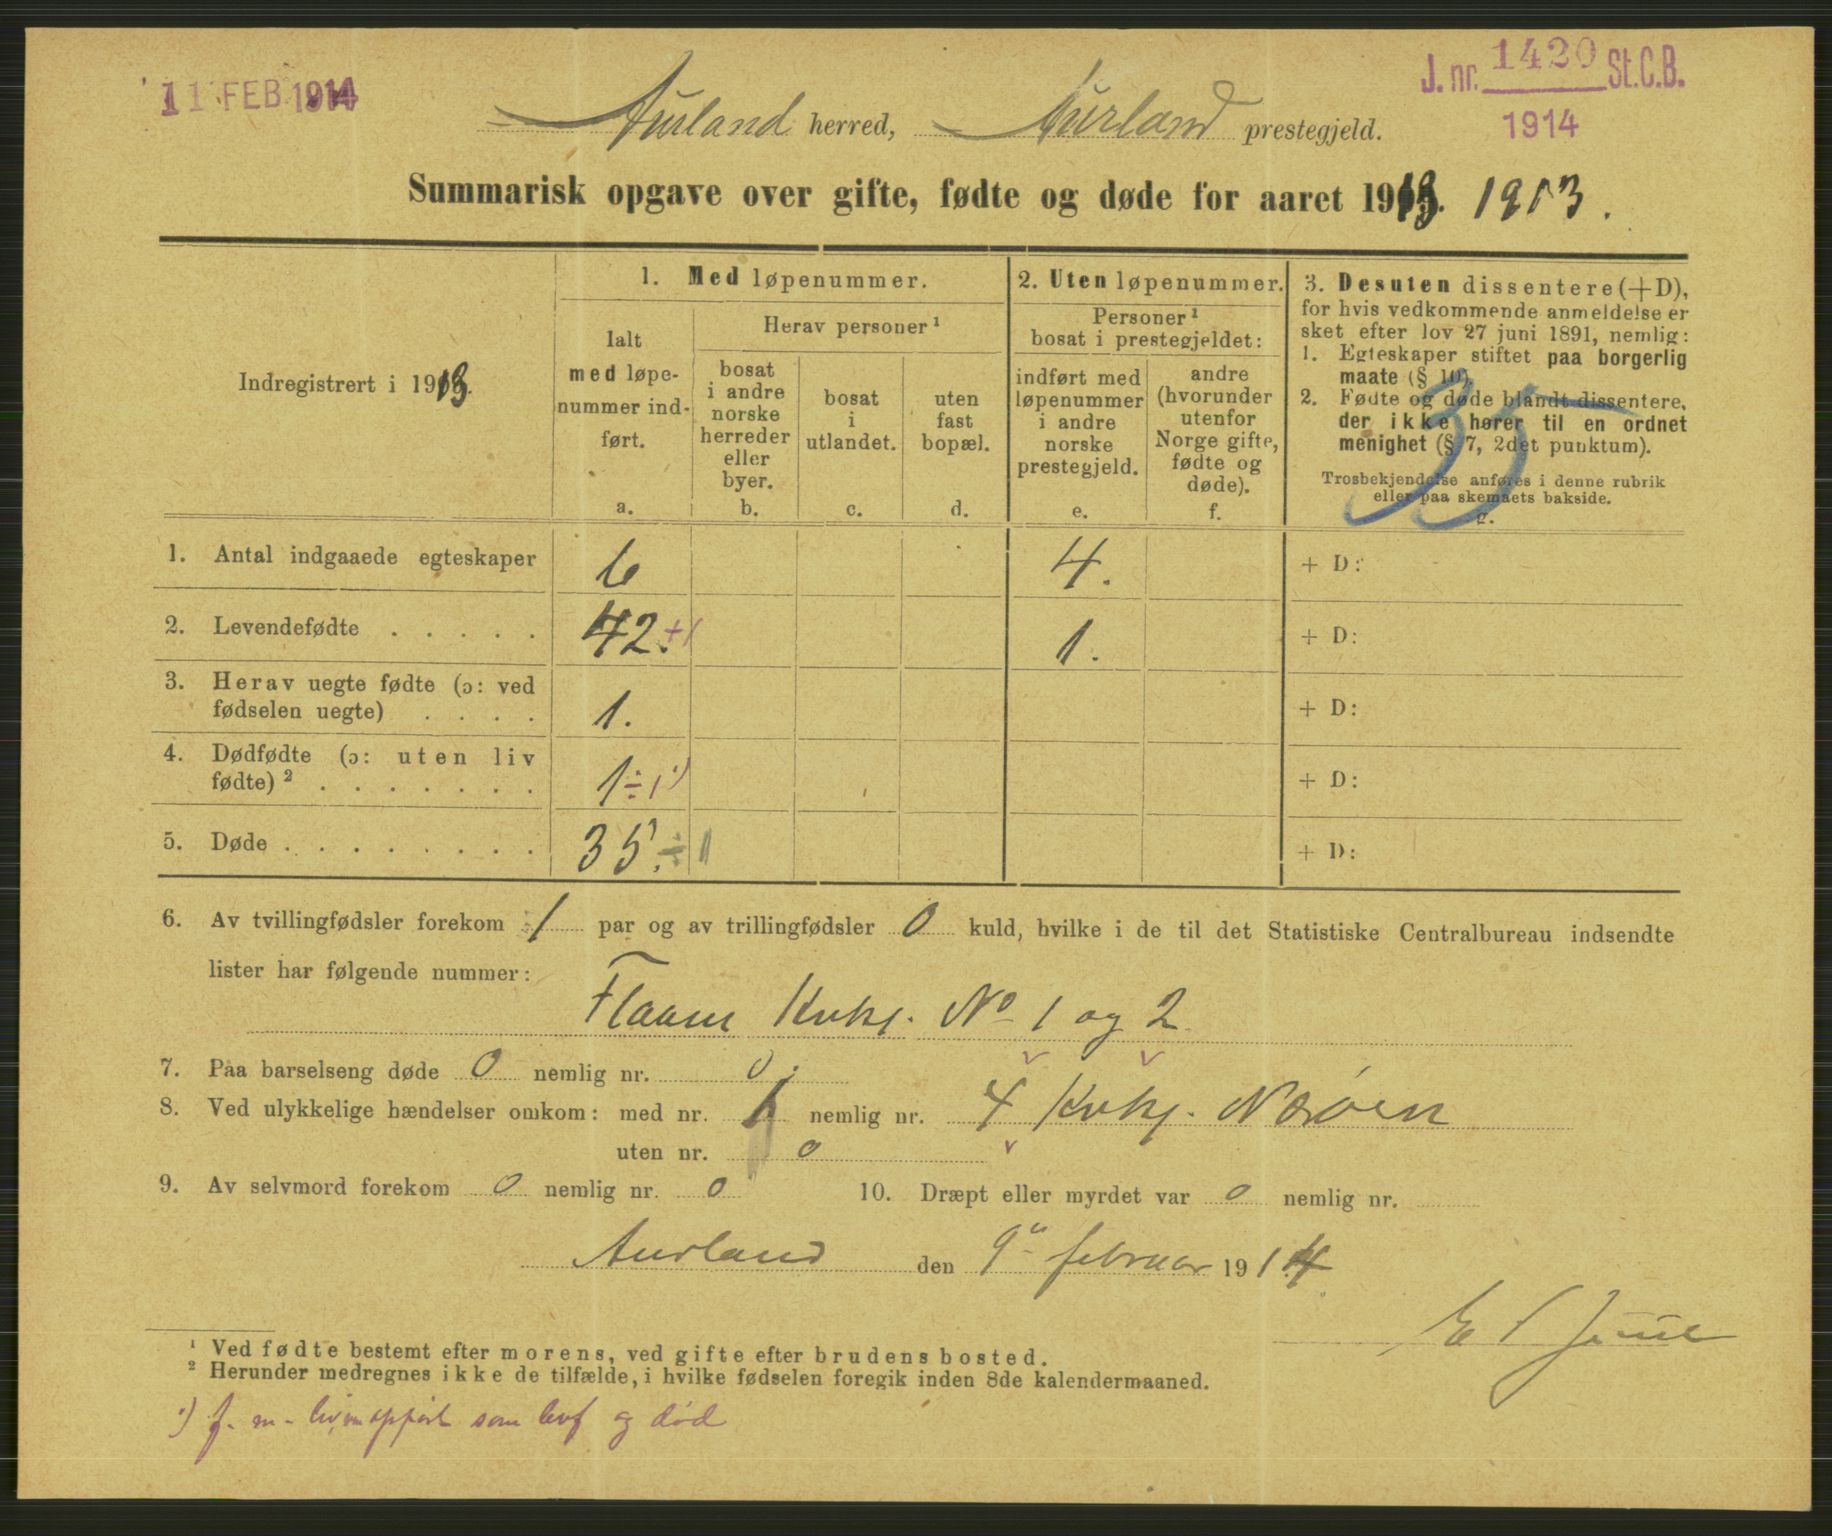 11 FEB 1914
J. nr. 1420 St.C.B.
1914
Aurland herred, Aurland prestegjeld.
Summarisk opgave over gifte, fødte og døde for aaret 1913. 1913.
Indregistrert i 1913.
1. Med løpenummer.
Ialt
med løpe-
nummer ind-
ført.
a.
Herav personer ¹
bosat
i andre
norske
herreder
eller
byer.
b.
bosat
i
utlandet.
c.
uten
fast
bopæl.
d.
2. Uten løpenummer.
Personer ¹
bosat i prestegjeldet:
indført med
løpenummer
i andre
norske
prestegjeld.
e.
andre
(hvorunder
utenfor
Norge gifte,
fødte og
døde).
f.
3. Desuten dissentere (+D),
for hvis vedkommende anmeldelse er
sket efter lov 27 juni 1891, nemlig:
1. Egteskaper stiftet paa borgerlig
maate (§ 10).
2. Fødte og døde blandt dissentere,
der ikke hører til en ordnet
menighet (§ 7, 2det punktum).
Trosbekjendelse anføres i denne rubrik
eller paa skemaets bakside.
g.
35
1. Antal indgaaede egteskaper 6 4. + D:
2. Levendefødte . . . . . 42. +1 1. + D:
3. Herav uegte fødte (ɔ: ved
fødselen uegte) . . . . 1. + D:
4. Dødfødte (ɔ: uten liv
fødte) ² . . . . . . . 1 ÷1 ·) + D:
5. Døde . . . . . . . . 35. ÷1 + D:
6. Av tvillingfødsler forekom 1 par og av trillingfødsler 0 kuld, hvilke i de til det Statistiske Centralbureau indsendte
lister har følgende nummer:
Flaam Kirkj. No 1 og 2
7. Paa barselseng døde 0 nemlig nr. 0.
8. Ved ulykkelige hændelser omkom: med nr. 1 nemlig nr. 4 Kirkj. Nærøen
uten nr. 0
9. Av selvmord forekom 0 nemlig nr. 0 10. Dræpt eller myrdet var 0 nemlig nr.
Aurland den 9de februar 1914
E Juul
¹ Ved fødte bestemt efter morens, ved gifte efter brudens bosted.
² Herunder medregnes ikke de tilfælde, i hvilke fødselen foregik inden 8de kalendermaaned.
·) f. m - opført som levf og død